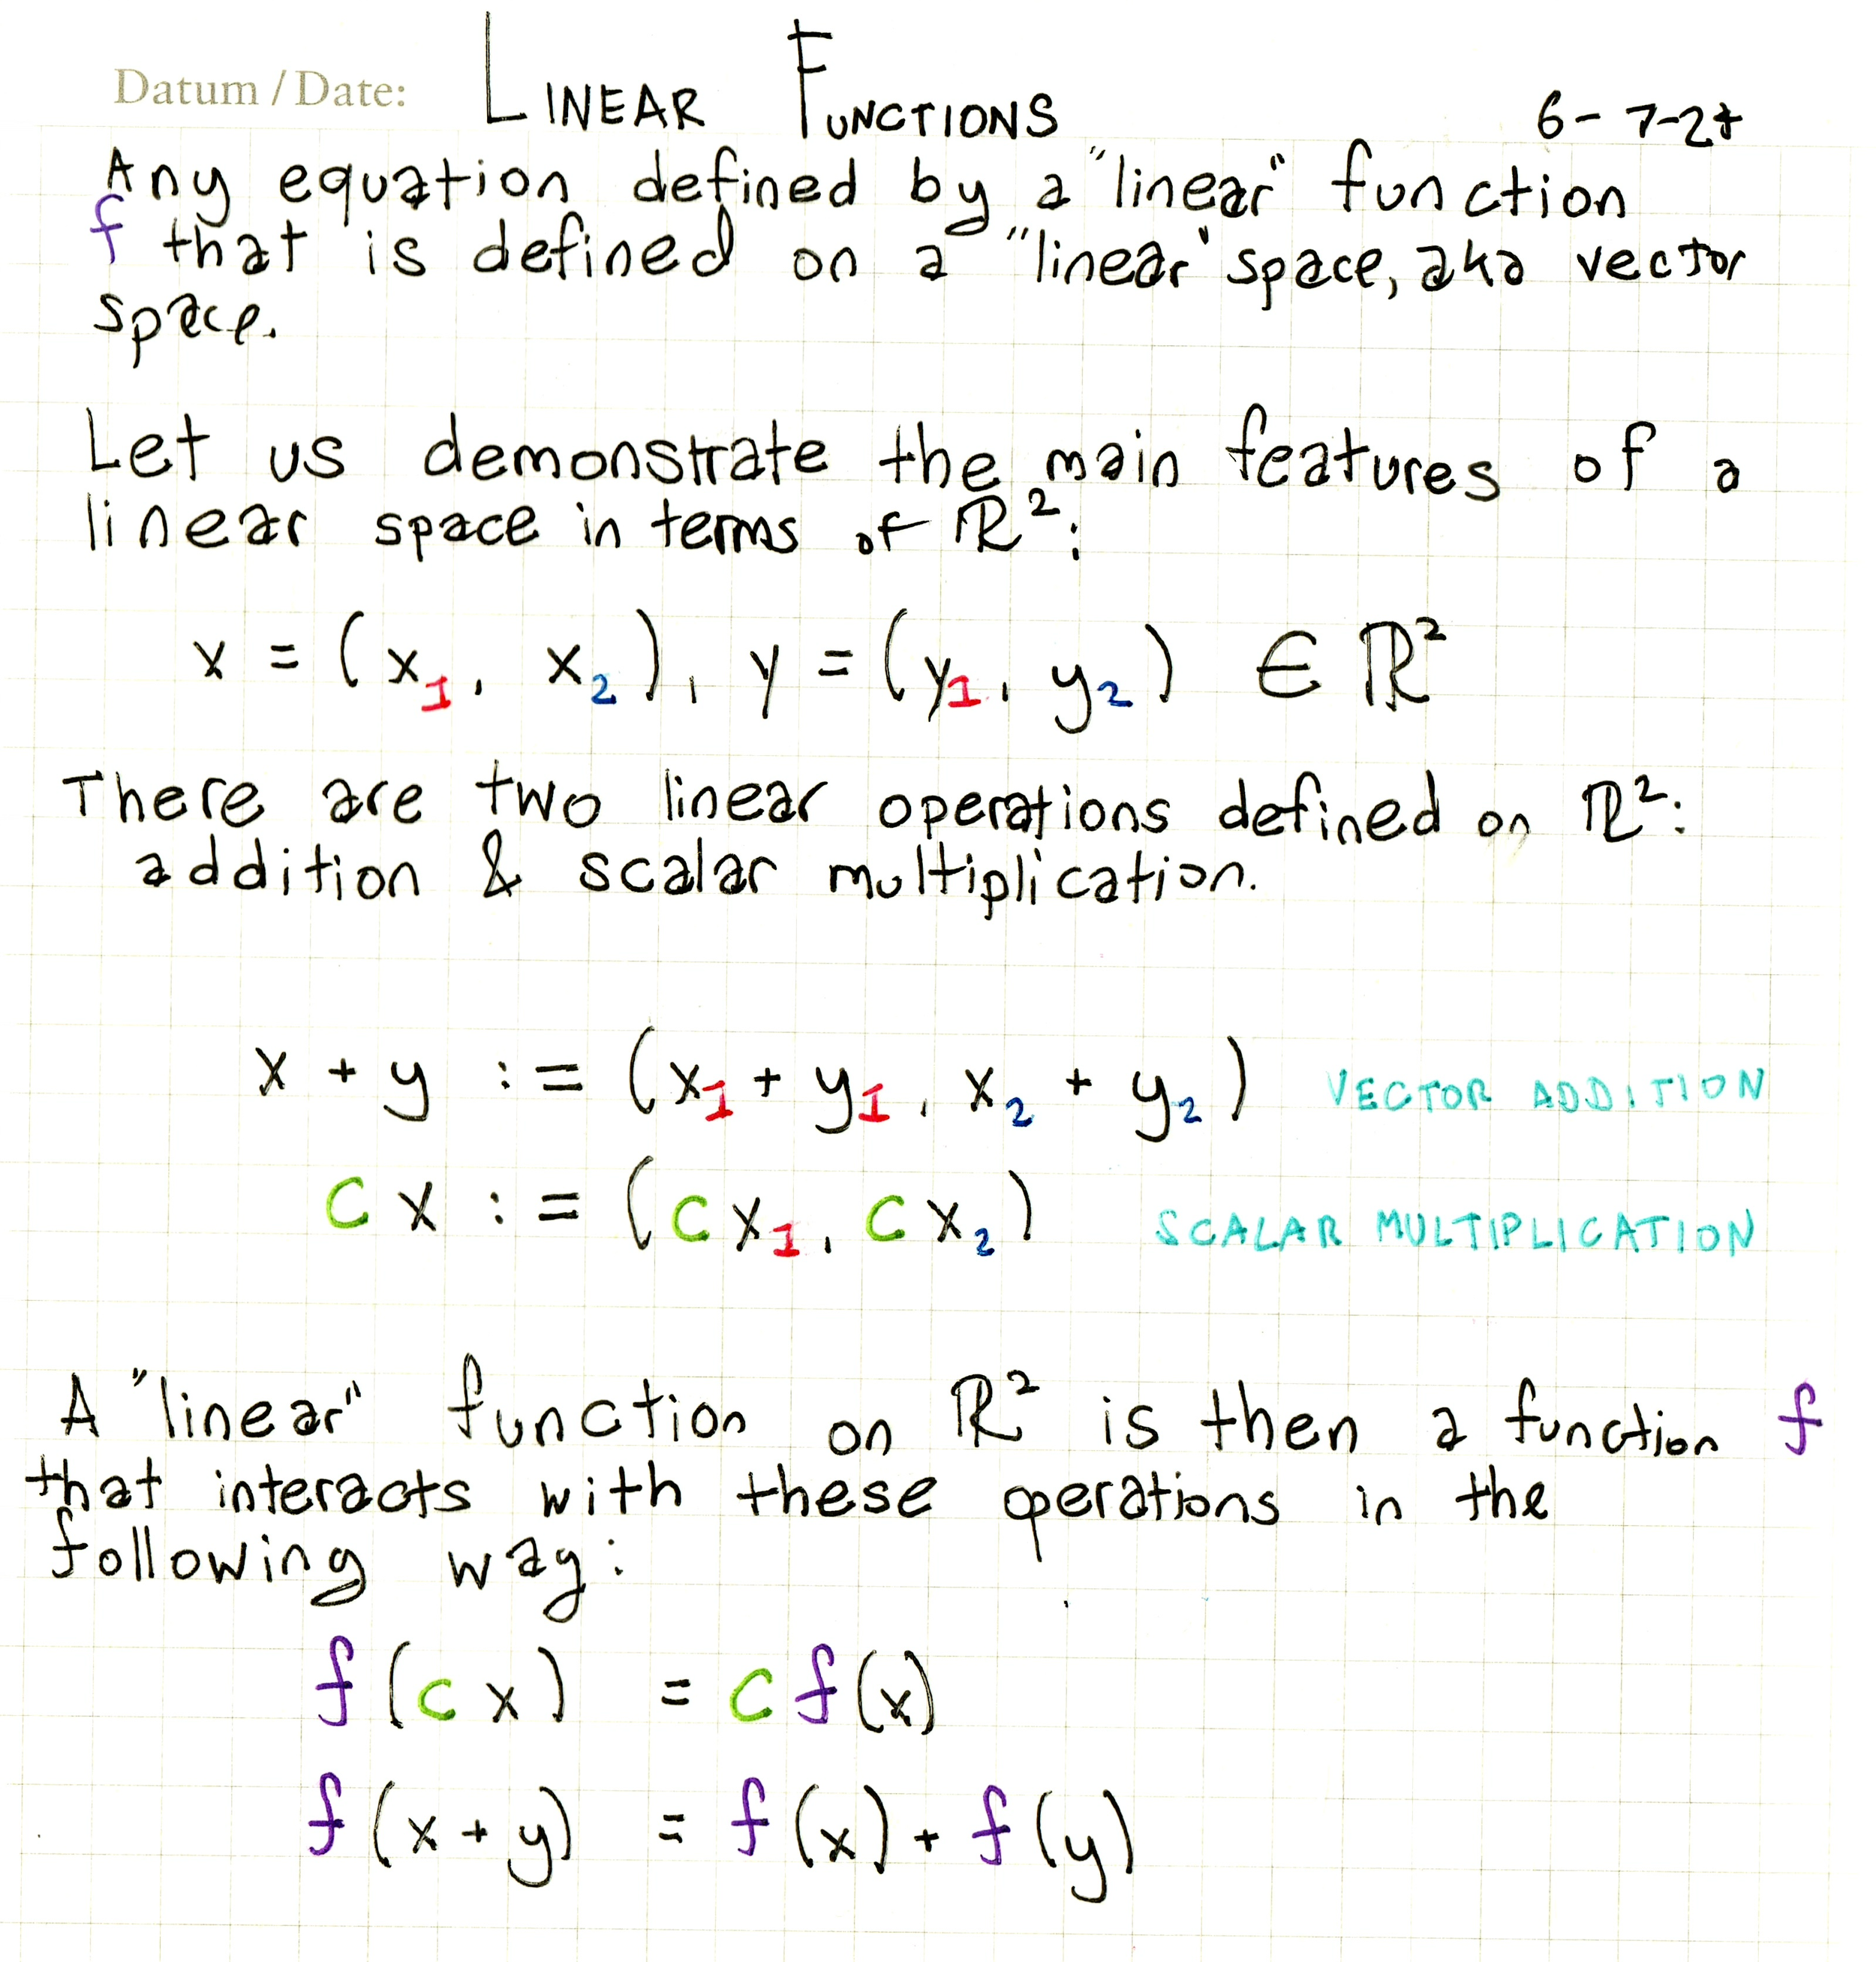 Datum / Date: LINEAR FUNCTIONS 6-7-24
Any equation defined by a "linear" function
f that is defined on a "linear" space, aka vector
space.
Let us demonstrate the main features of a
linear space in terms of ℝ²:
x = (x₁, x₂), y = (y₁, y₂) ∈ ℝ²
There are two linear operations defined on ℝ²:
addition & scalar multiplication.
x + y := (x₁ + y₁, x₂ + y₂) VECTOR ADDITION
cx := (cx₁, cx₂) SCALAR MULTIPLICATION
A "linear" function on ℝ² is then a function f
that interacts with these operations in the
following way:
f(cx) = cf(x)
f(x+y) = f(x) + f(y)